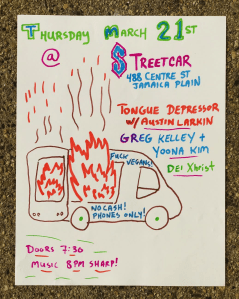 THURSDAY MARCH 21ST
@ STREETCAR
488 CENTRE ST
JAMAICA PLAIN
TONGUE DEPRESSOR
W/ AUSTIN LARKIN
GREG KELLEY +
YOONA KIM
DEI XHRIST
FUCK
VEGANS!
NO CASH!
PHONES ONLY!
DOORS 7:30
MUSIC 8PM SHARP!